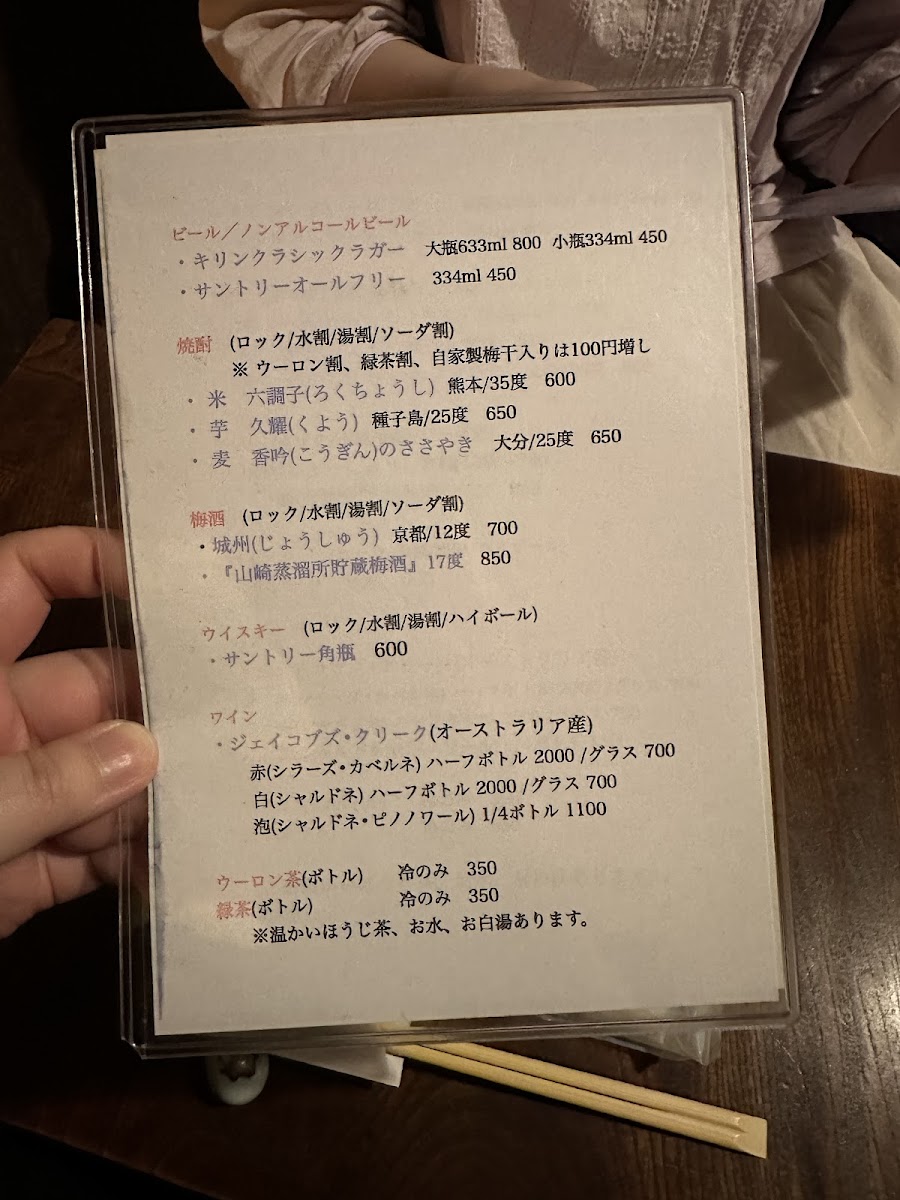 ビール／ノンアルコールビール
・キリンクラシックラガー 大瓶633ml 800 小瓶334ml 450
・サントリーオールフリー 334ml 450
焼酎 (ロック/水割/湯割/ソーダ割)
※ ウーロン割、緑茶割、自家製梅干入りは100円増し
・米 六調子(ろくちょうし) 熊本/35度 600
・芋 久耀(くよう) 種子島/25度 650
・麦 香吟(こうぎん)のささやき 大分/25度 650
梅酒 (ロック/水割/湯割/ソーダ割)
・城州(じょうしゅう) 京都/12度 700
・『山崎蒸溜所貯蔵梅酒』17度 850
ウイスキー (ロック/水割/湯割/ハイボール)
・サントリー角瓶 600
ワイン
・ジェイコブズ・クリーク(オーストラリア産)
赤(シラーズ・カベルネ) ハーフボトル 2000 /グラス 700
白(シャルドネ) ハーフボトル 2000 /グラス 700
泡(シャルドネ・ピノノワール) 1/4ボトル 1100
ウーロン茶(ボトル) 冷のみ 350
緑茶(ボトル) 冷のみ 350
※温かいほうじ茶、お水、お白湯あります。